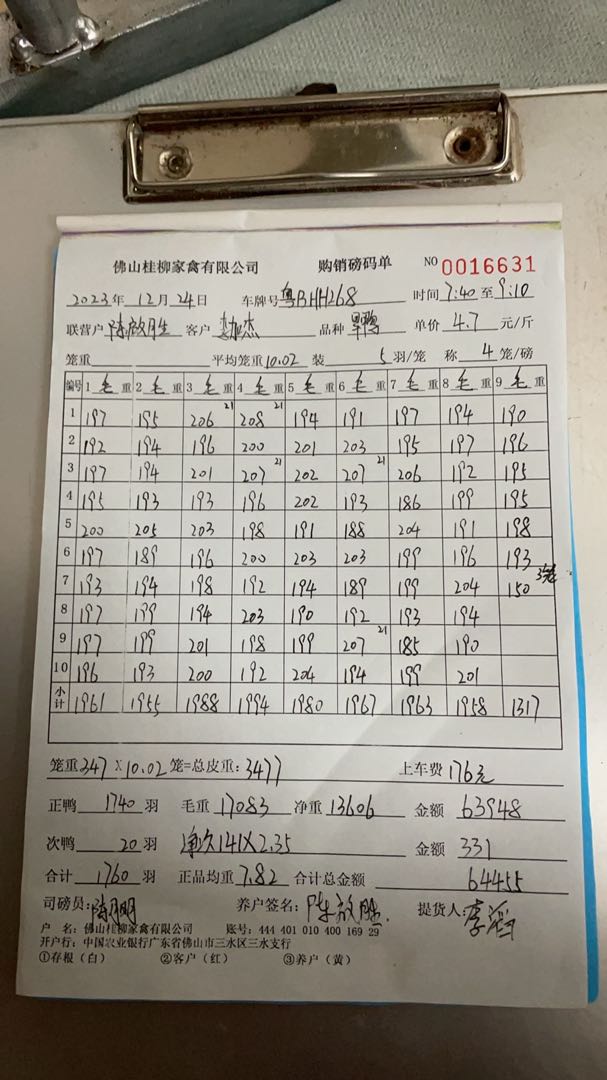 佛山桂柳家禽有限公司 购销磅码单 NO 0016631
2023年 12月 24日 车牌号 粤BHH268 时间 7:40 至 9:10
联营户 陈啟胜 客户 杰 品种 单价 4.7 元/斤
笼重 平均笼重 10.02 装 5 羽/笼 称 4 笼/磅
编号 1 毛 重 2 毛 重 3 毛 重 4 毛 重 5 毛 重 6 毛 重 7 毛 重 8 毛 重 9 毛 重
1 197 195 206 21 208 21 194 191 197 194 190
2 192 194 196 200 201 203 195 197 196
3 197 194 201 207 21 202 207 21 206 192 195
4 195 193 193 196 202 193 186 199 195
5 200 205 203 198 191 188 204 191 198
6 197 189 196 200 203 203 199 196 193
7 193 194 198 192 194 189 199 204 150 3笼
8 197 199 194 203 190 192 193 194
9 197 199 201 198 199 207 21 185 190
10 196 193 200 192 204 194 199 201
小计 1961 1955 1988 1994 1980 1967 1963 1958 1317
笼重 347 X 10.02 笼=总皮重: 3477 上车费 176元
正鸭 1740 羽 毛重 17083 净重 13606 金额 63948
次鸭 20 羽 净次141X2.35 金额 331
合计 1760 羽 正品均重 7.82 合计总金额 64455
司磅员: 陈明 养户签名: 陈啟胜 提货人: 李滔
户 名: 佛山桂柳家禽有限公司 账号: 444 401 010 400 169 29
开户行: 中国农业银行广东省佛山市三水区三水支行
①存根（白） ②客户（红） ③养户（黄）